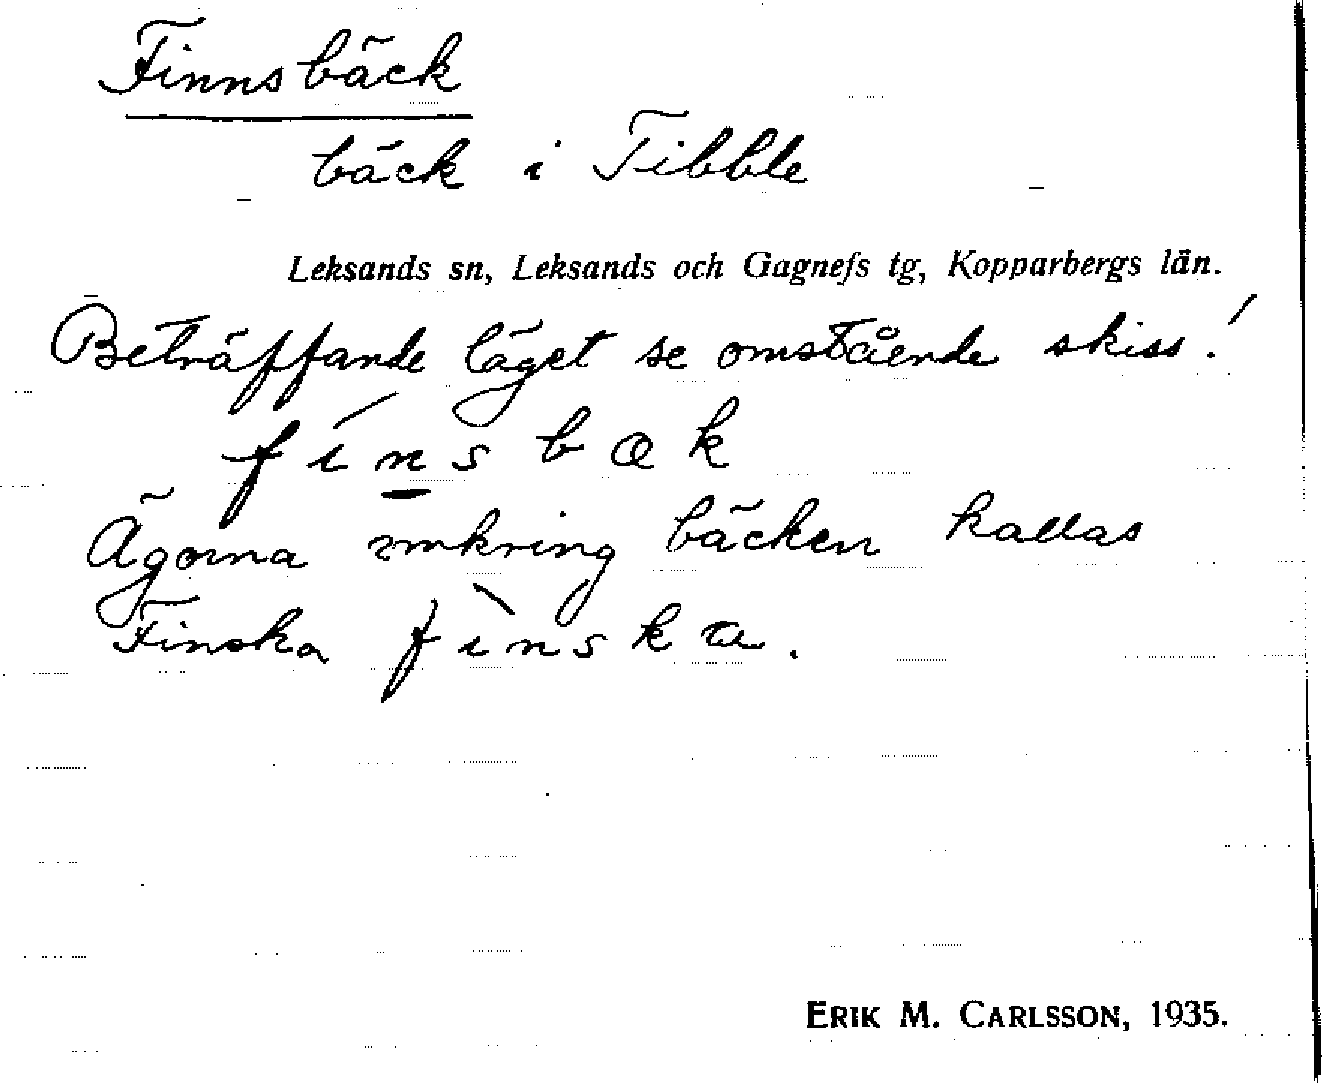 Finnsbäck
bäck i Tibble
Leksands sn, Leksands och Gagnefs tg, Kopparbergs län.
Beträffande läget se omstående skiss!
fín̠sbæk
Ägorna omkring bäcken kallas
Finska fìnska.
ERIK M. CARLSSON, 1935.